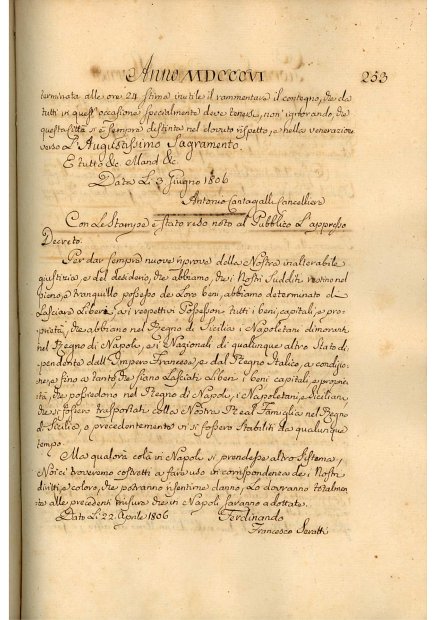 Anno MDCCCVI 253
terminata alle ore 24 stima inutile il rammentare il contegno, che da
tutti in quest'occasione specialmente deve tenersi, non ignorando, che
questa Città si è sempre distinta nel dovuto rispetto, e nella venerazione
verso L'Augustissimo Sagramento.
E tutto &c. Mand &c.
Data Li 3 Giugno 1806
Antonio Cantagalli Cancelliere
Con Le Stampe è stato reso noto al Pubblico L'appresso
Decreto:
Per dar sempre nuove riprove della Nostra inalterabile
giustizia, e del desiderio, che abbiamo, che i Nostri Sudditi restino nel
pieno, e tranquillo possesso de Loro beni, abbiamo determinato di
Lasciare Liberi, ai respettivi Possessori tutti i beni, capitali, e pro-
prietà, che abbiano nel Regno di Sicilia i Napoletani dimoranti
nel Regno di Napoli, e i Nazionali di qualunque altro Stato di-
pendente dall'Impero Francese, e dal Regno Italico, a condizio-
ne, e fino a tanto che siano Lasciati Liberi i beni capitali, e proprie-
tà, che possiedono nel Regno di Napoli, i Napoletani, e Siciliani,
che si fossero trasportati colla Nostra Real Famiglia nel Regno
di Sicilia, o precedentemente vi si fossero Stabiliti da qualunque
tempo.
Ma qualora colà in Napoli si prendesse altro Sistema,
Noi ci troveremo costretti a fare uso in corrispondenza de i Nostri
diritti, e coloro, che potranno risentirne danno, Lo dovranno totalmen
te alle precedenti misure che in Napoli saranno adottate.
Dato Li 22 Aprile 1806 Ferdinando
Francesco Seratti